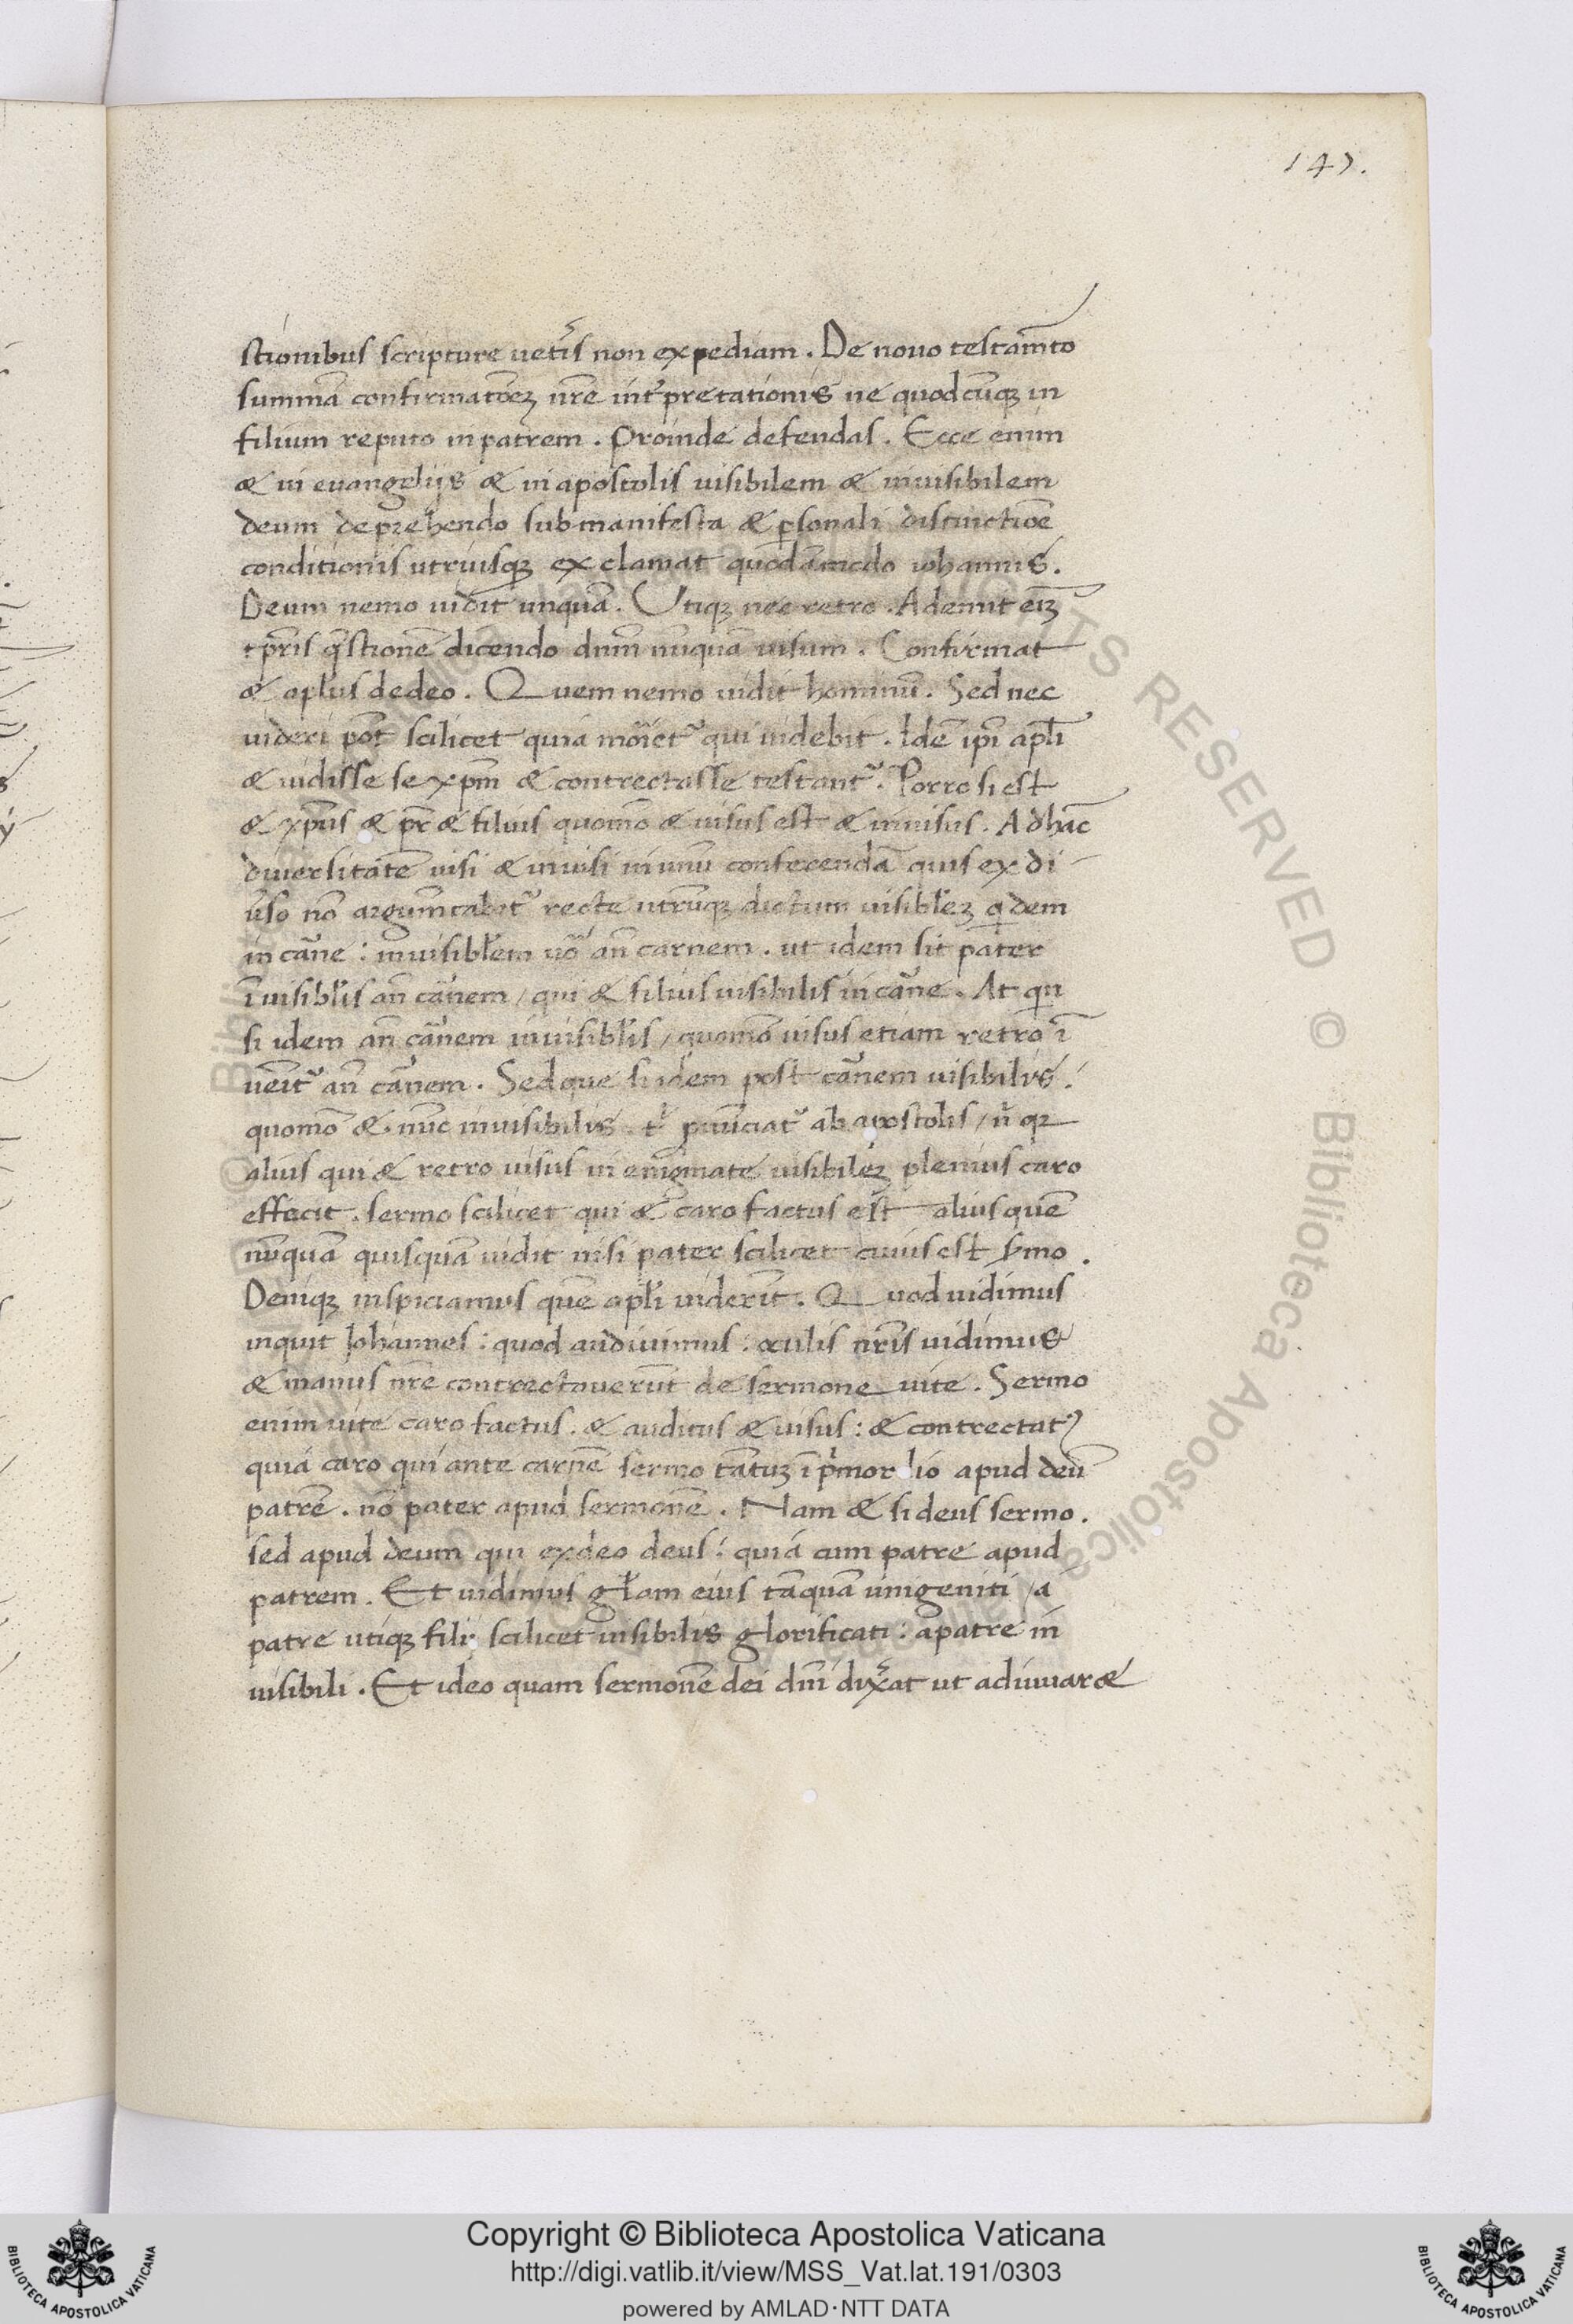 147.
stionibus scripture uet̃is non expediam. De nouo testam̃to
summã confirmatõez nr̃e int̃pretationis ne quodcũqz in
filium reputo in patrem. Proinde defendas. Ecce enim
& in euangelijs & in apostolis uisibilem & inuisibilem
deum deprehendo sub manifesta & ꝑsonali distinctiõe
conditionis utriusqz exclamat quodãmodo iohannis.
Deum nemo uidit unquã. Utiqz nec retro. Ademit eĩz
tp̃ris q̃stionẽ dicendo dnm̃ nũquã uisum. Confirmat
& aplus de deo. Quem nemo uidit hominũ. Sed nec
uideri põt scilicet quia moriet᷑ qui uidebit. Idẽ ip̃i apl̃i
& uidisse se xpm̃ & contrectasse testant᷑. Porro si est
& xp̃us & pr̃ & filius quomõ & uisus est & inuisus. Ad hãc
diuersitatẽ uisi & inuisi in unũ conferendã quis ex di
ũso nõ argum̃tabit᷑ recte utrũqz dictum uisibl̃ez qdem
in cãne: inuisibl̃em uõ añ carnem. ut idem sit pater
ĩuisibl̃is añ cãnem / qui & filius uisibilis in cãne. At qn
si idem añ cãnem inuisibl̃is / quomõ uisus etiam retro ĩ
uẽit᷑ añ cãnem. Sed que si idem post cãnem uisibilis.
quomõ & nũc inuisibilis ꝓnũciat᷑ ab apostolis / ñ qz
alius qui & retro uisus in enigmate uisibilez plenius caro
effecit. sermo scilicet qui & caro factus est alius quẽ
nũquã quisquã uidit nisi pater scilicet cuius est s̃mo.
Deniqz inspiciamus quẽ apl̃i uiderũt. Quod uidimus
inquit Iohannes: quod audiuimus: oculis nr̃is uidimus
& manus nr̃e contrectauerũt de sermone uite. Sermo
enim uite caro factus. & auditus & uisus: & contrectatꝰ
quia caro qui ante carnẽ sermo tãtuz ĩ p̃mordio apud deũ
patrẽ. nõ pater apud sermonẽ. Nam & si deus sermo.
sed apud deum qui ex deo deus: quia cum patre apud
patrem. Et uidimus gl̃am eius tãquã unigeniti / a
patre utiqz filij scilicet uisibilis glorificati: a patre in
uisibili. Et ideo quam sermonẽ dei dñi dix̃at ut adiuuar&
Copyright © Biblioteca Apostolica Vaticana
http://digi.vatlib.it/view/MSS_Vat.lat.191/0303
powered by AMLAD·NTT DATA